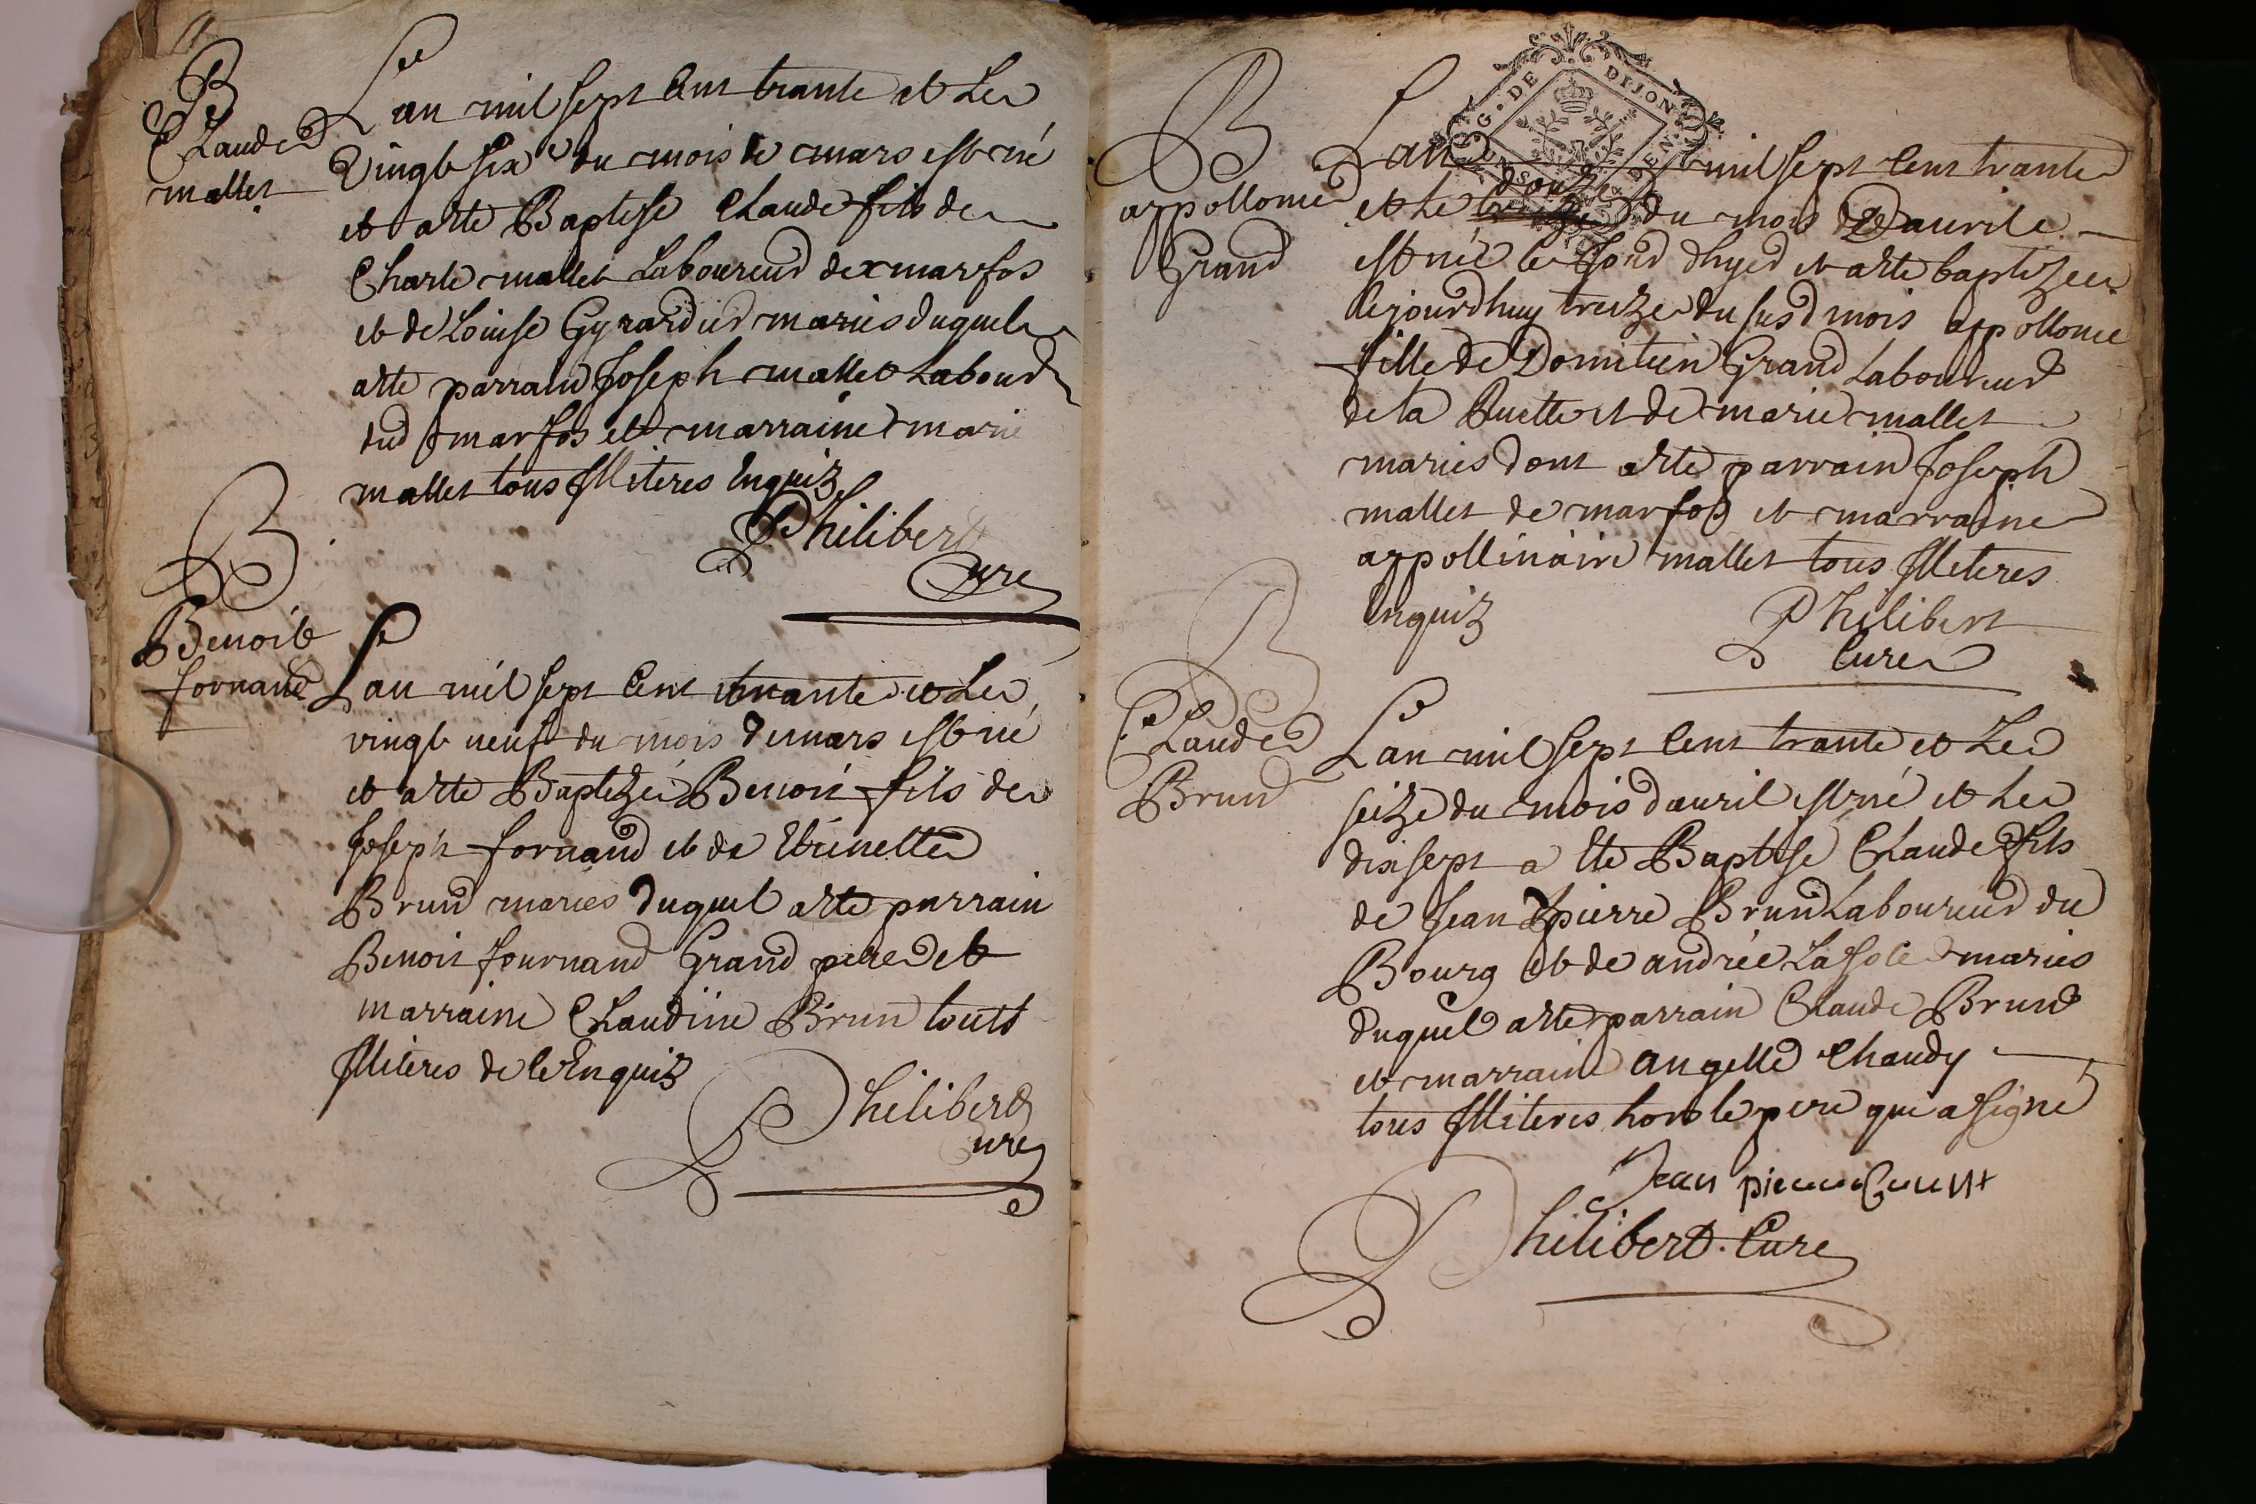 B
Claude
mallet
Lan mil sept Cent trante et Le
Vingt six du mois de mars est né
et atte Baptise Claude fils de
Charle mallet Laboureur de marfos
et de Louise Gyrardier mariés duquel
atte parrain Joseph mallet Labour
dud marfos et marraine marie
mallet tous Illiteres Enquiz
Philibert
Cure
B
Benoit
fornand
Lan mil sept Cent trante et Le
vingt neuf du mois de mars est né
et atte Baptizé Benoit fils de
Joseph fornand et de Etienette
Brun mariés duquel atte parrain
Benoit fournand Grand pere et
marraine Claudine Brun touts
Illiteres de ce Enquiz
Philibert
Cure
G. DE DIJON
B
appollonie
Grand
Lan mil sept Cent trante
et le douze du mois Davrile
est née le Jour dhyer et atte baptizee
Cejourdhuy treize du susd mois appollonie
fille de Domitien Grand Laboureur
de la Buette et de marie mallet
mariés dont atte parrain Joseph
mallet de marfos et marraine
appollinaire mallet tous Illiteres
Enquiz
Philibert
Cure
B
Claude
Brun
Lan mil sept Cent trante et Le
seize du mois davril est né et Le
dixsept a Ete Baptise Claude fils
de Jean pierre Brun Laboureur du
Bourg et de andrée mariés
duquel atte parrain Claude Brun
et marraine angelle Chaudy
tous Illiteres hors le pere qui a signé
Jean pierre
Philibert. Cure